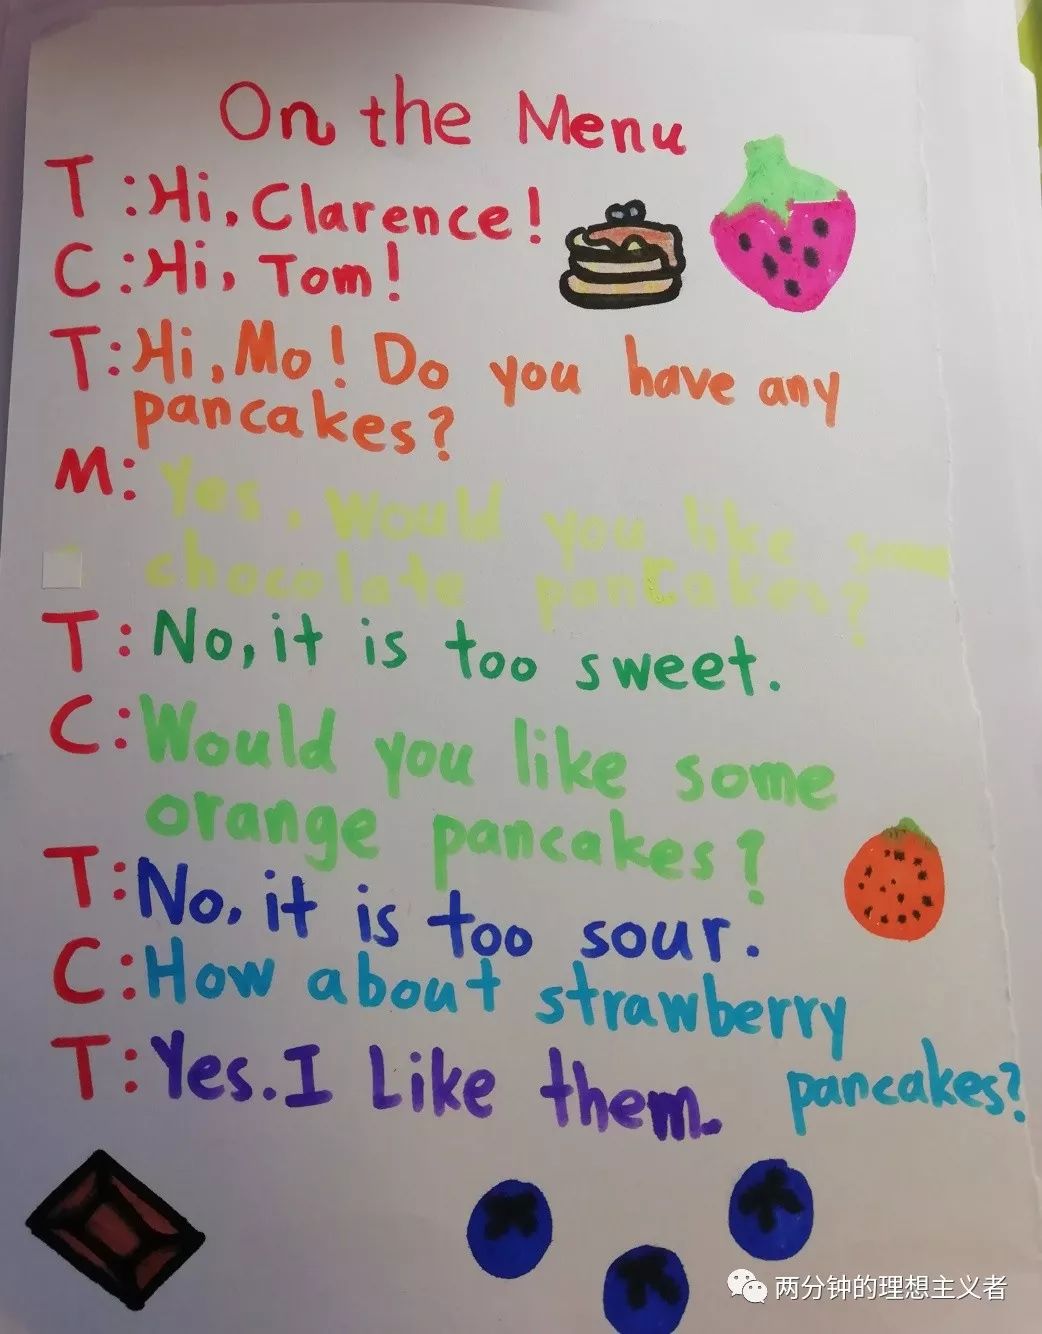 On the Menu
T:Hi, Clarence!
C:Hi, Tom!
T:Hi, Mo! Do you have any
pancakes?
M: Yes, Would you like some
chocolate pancakes?
T: No, it is too sweet.
C:Would you like some
orange pancakes?
T:No, it is too sour.
C:How about strawberry
pancakes?
T:Yes. I Like them.
两分钟的理想主义者